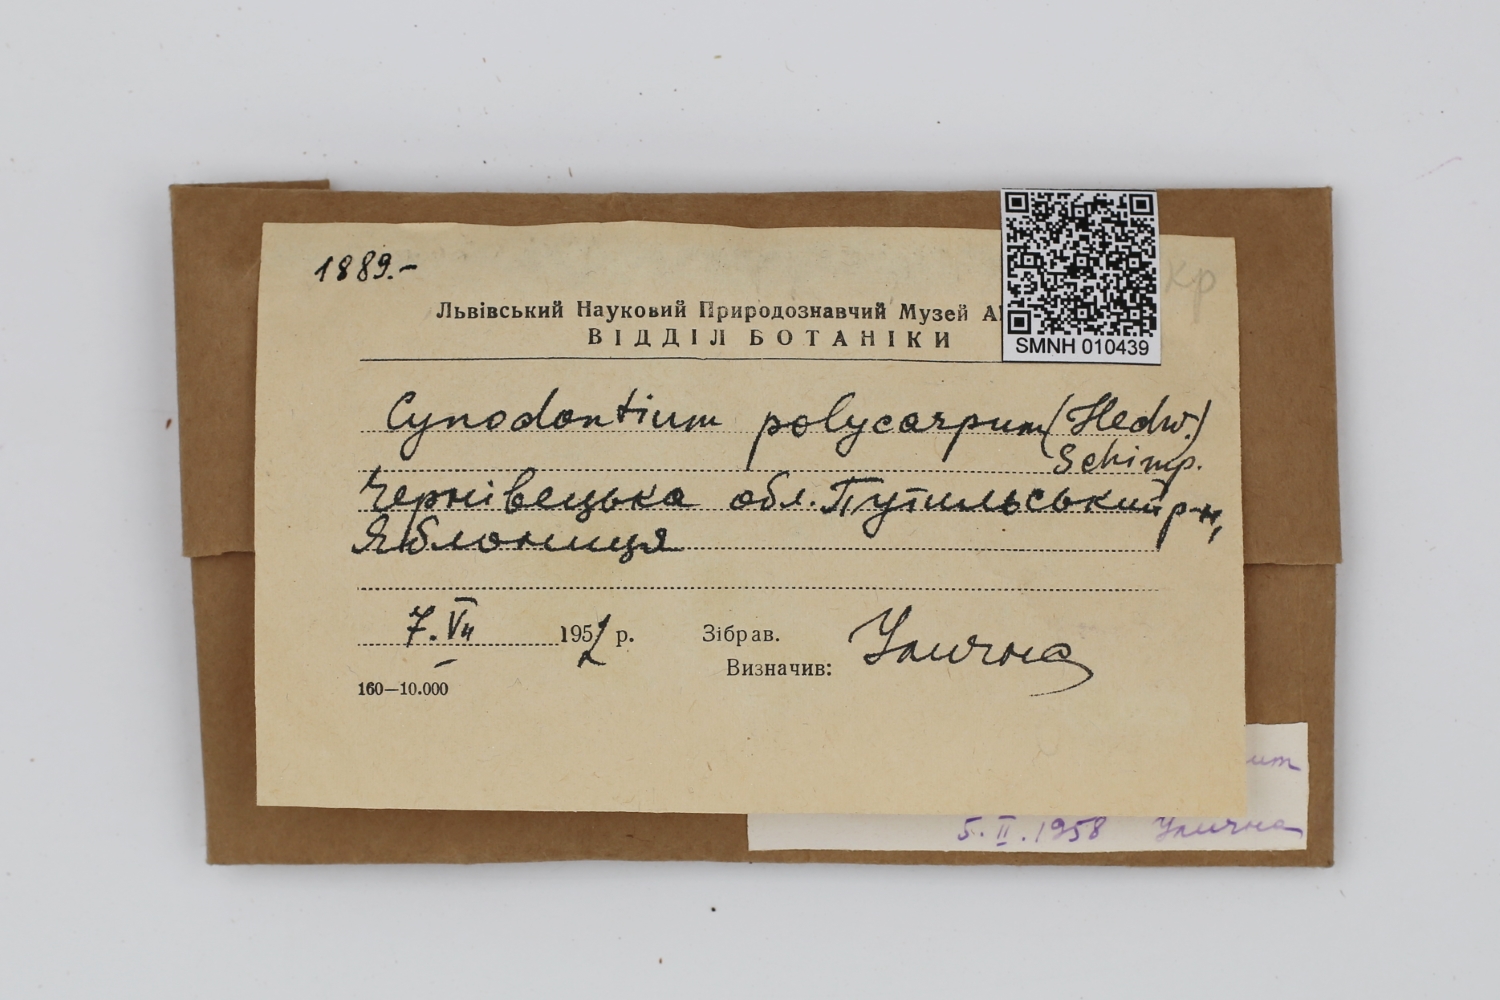 1889.-
кр
Львівський Науковий Природознавчий Музей А
ВІДДІЛ БОТАНІКИ
SMNH 010439
Cynodontium polycarpum (Hedw.)
Schimp.
Чернівецька обл. Путильський р-н,
Яблониця
7.VII 1952 р.
Зібрав.
Визначив:
Улична
160—10.000
um
5.II.1958 Улична